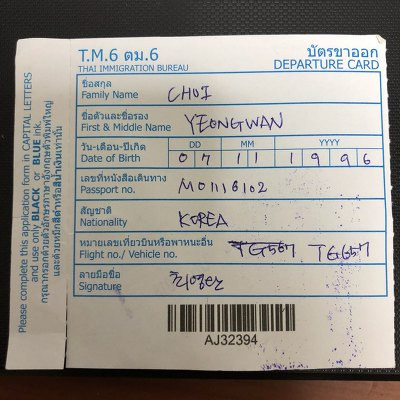 T.M.6 ตม.6 บัตรขาออก
THAI IMMIGRATION BUREAU DEPARTURE CARD
ชื่อสกุล
Family Name CHOI
ชื่อตัวและชื่อรอง
First & Middle Name YEONGWAN
วัน-เดือน-ปีเกิด DD MM YYYY
Date of Birth 07 11 1996
เลขที่หนังสือเดินทาง
Passport no. M01116102
สัญชาติ
Nationality KOREA
หมายเลขเที่ยวบินหรือพาหนะอื่น
Flight no./ Vehicle no. TG567 TG657
ลายมือชื่อ
Signature 최영완
AJ32394
Please complete this application form in CAPITAL LETTERS
and use only BLACK or BLUE ink.
กรุณากรอกด้วยตัวอักษรภาษาอังกฤษตัวพิมพ์ใหญ่
และด้วยหมึกสีดำหรือสีน้ำเงินเท่านั้น